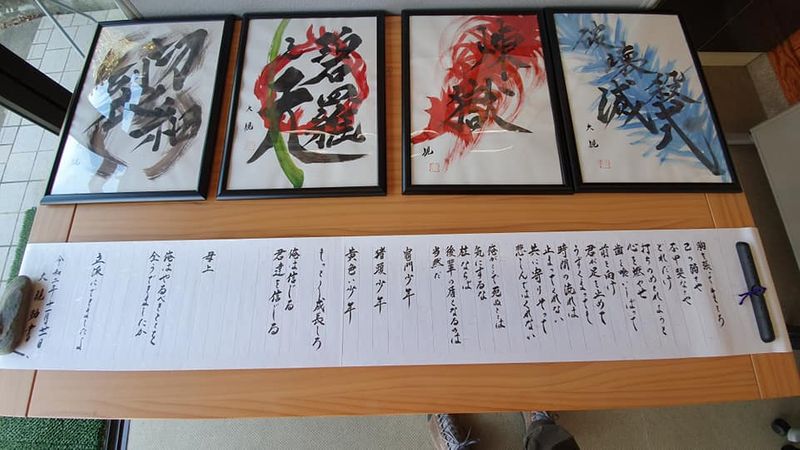 碧羅
之天
煉獄
破壊殺
滅式
胸を張って生きろ
己の弱さや
不甲斐なさに
どれだけ
打ちのめされようと
心を燃やせ
歯を喰いしばって
前を向け
君が足を止めて
うずくまっても
時間の流れは
止まってくれない
共に寄りそって
悲しんではくれない
俺がここで死ぬことは
気にするな
柱ならば
後輩の盾となるのは
当然だ
竈門少年
猪頭少年
黄色い少年
もっともっと成長しろ
俺は信じる
君達を信じる
母上
俺はやるべきこと
全うできましたか
立派にできましたよ